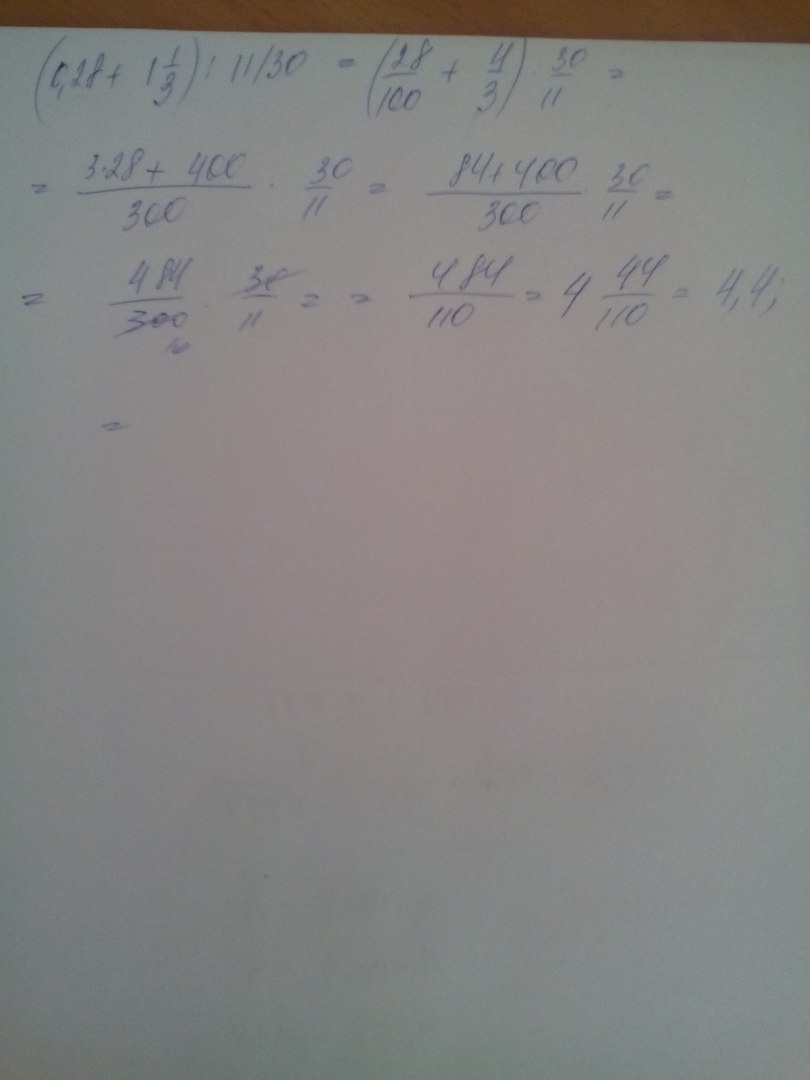 (0,28 + 1 1/3) : 11/30 = (28/100 + 4/3) · 30/11 =
= (3·28 + 400)/300 · 30/11 = (84+400)/300 · 30/11 =
= 484/300 · 30/11 = = 484/110 = 4 44/110 = 4,4;
10
=